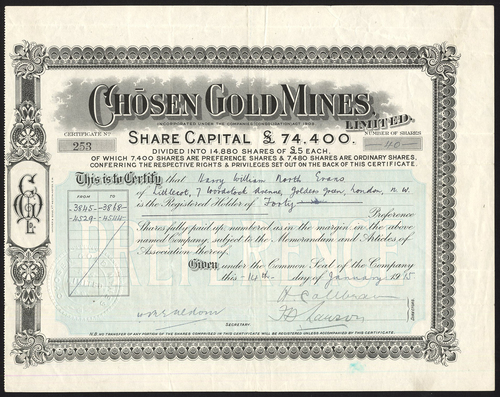 CHŌSEN GOLD MINES
LIMITED.
INCORPORATED UNDER THE COMPANIES (CONSOLIDATION) ACT, 1908.
CERTIFICATE Nº
253
SHARE CAPITAL £ 74,400.
NUMBER OF SHARES
-40-
DIVIDED INTO 14,880 SHARES OF £5 EACH,
OF WHICH 7,400 SHARES ARE PREFERENCE SHARES & 7,480 SHARES ARE ORDINARY SHARES,
CONFERRING THE RESPECTIVE RIGHTS & PRIVILEGES SET OUT ON THE BACK OF THIS CERTIFICATE.
This is to Certify that Harry William North Evans
of 7 Woodstock Avenue, Golders Green, London, N.W.
is the Registered Holder of Forty
FROM TO
3845 - 3868
4529 - 4544
Preference
Shares fully paid up, numbered as in the margin in the above
named Company, subject to the Memorandum and Articles of
Association thereof.
Given under the Common Seal of the Company
this 14th day of January 1915
DIRECTORS.
SECRETARY.
N.B. NO TRANSFER OF ANY PORTION OF THE SHARES COMPRISED IN THIS CERTIFICATE WILL BE REGISTERED UNLESS ACCOMPANIED BY THIS CERTIFICATE.